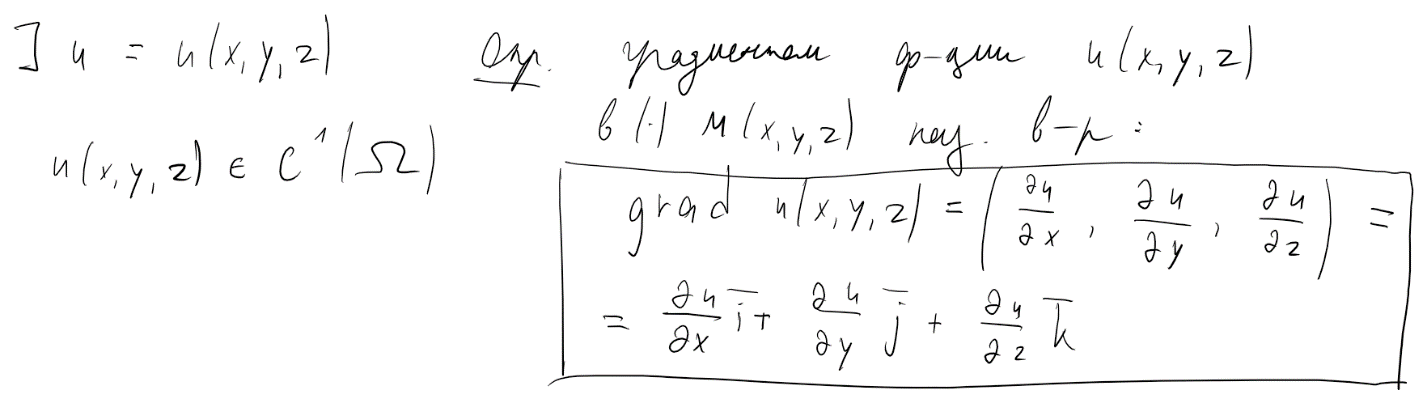 ] u = u(x, y, z)
u(x, y, z) ∈ C¹(Ω)
Опр. градиентом ф-ции u(x, y, z)
в (·) M(x, y, z) наз. в-р:
grad u(x, y, z) = (∂u/∂x, ∂u/∂y, ∂u/∂z) =
= ∂u/∂x i̅ + ∂u/∂y j̅ + ∂u/∂z k̅